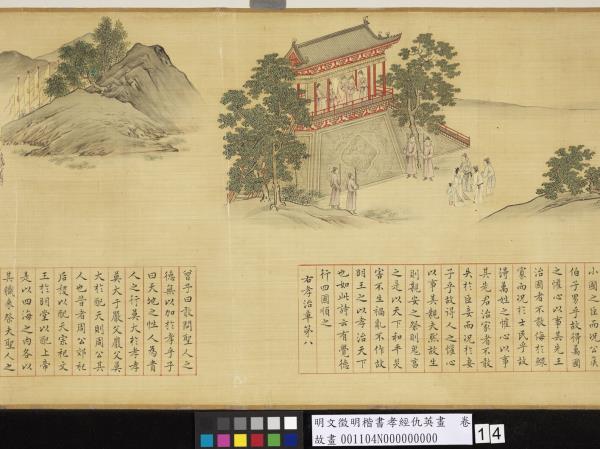 小國之臣而況公侯
伯子男乎故得萬國
之懽心以事其先王
治國者不敢侮於鰥
寡而況於士民乎故
得百姓之懽心以事
其先君治家者不敢
失於臣妾而況於妻
子乎故得人之懽心
以事其親夫然故生
則親安之祭則鬼享
之是以天下和平災
害不生禍亂不作故
明王之以孝治天下
也如此詩云有覺德
行四國順之
右孝治章第八
曾子曰敢問聖人之
德無以加於孝乎子
曰天地之性人為貴
人之行莫大於孝孝
莫大于嚴父嚴父莫
大於配天則周公其
人也昔者周公郊祀
后稷以配天宗祀文
王於明堂以配上帝
是以四海之內各以
其職來祭夫聖人之
明文徵明楷書孝經仇英畫 卷
故畫 001104N000000000
14